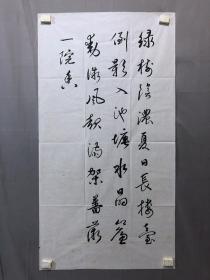 绿树阴浓夏日长楼台
倒影入池塘水晶簾
動微风起满架蔷薇
一院香